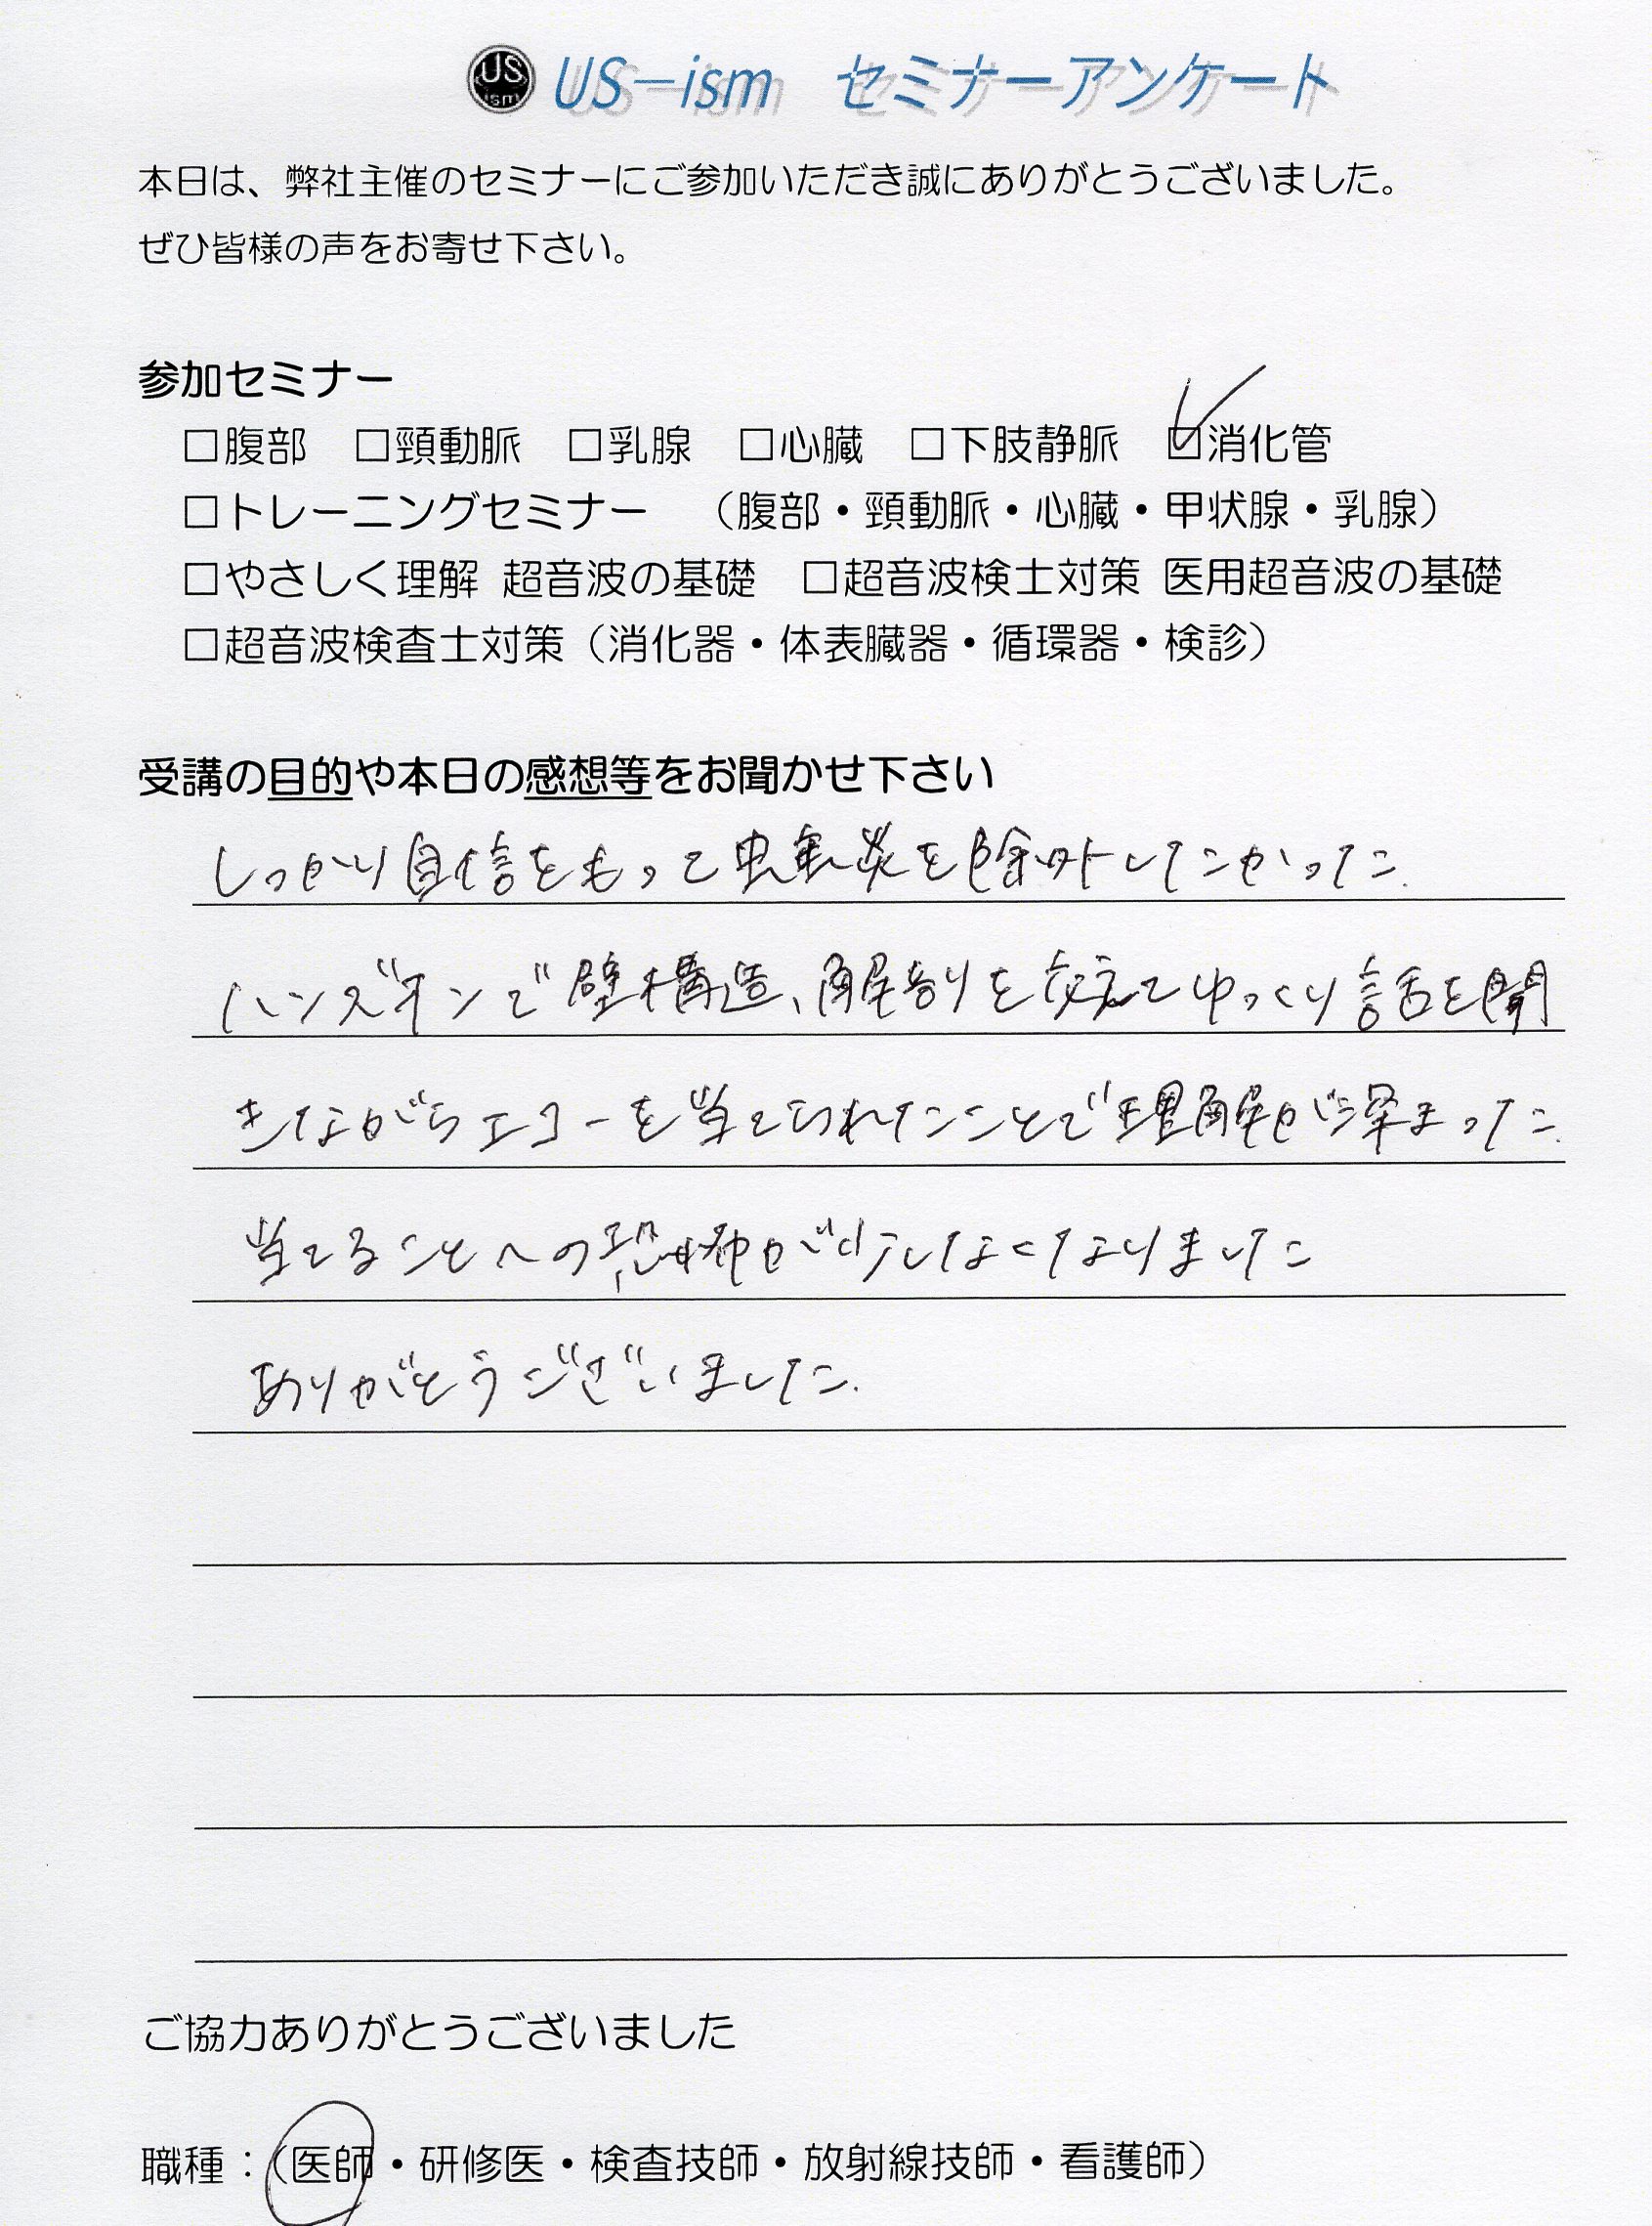 US ism US-ism セミナーアンケート
本日は、弊社主催のセミナーにご参加いただき誠にありがとうございました。
ぜひ皆様の声をお寄せ下さい。
参加セミナー
□腹部 □頸動脈 □乳腺 □心臓 □下肢静脈 ☑消化管
□トレーニングセミナー （腹部・頸動脈・心臓・甲状腺・乳腺）
□やさしく理解 超音波の基礎 □超音波検士対策 医用超音波の基礎
□超音波検査士対策（消化器・体表臓器・循環器・検診）
受講の目的や本日の感想等をお聞かせ下さい
しっかり自信をもって虫垂炎を除外したかった.
ハンズオンで壁構造、解剖を交えてゆっくり話を聞
きながらエコーを当てられたことで理解が深まった.
当てることへの恐怖が少しなくなりました
ありがとうございました.
ご協力ありがとうございました
職種：（医師・研修医・検査技師・放射線技師・看護師）